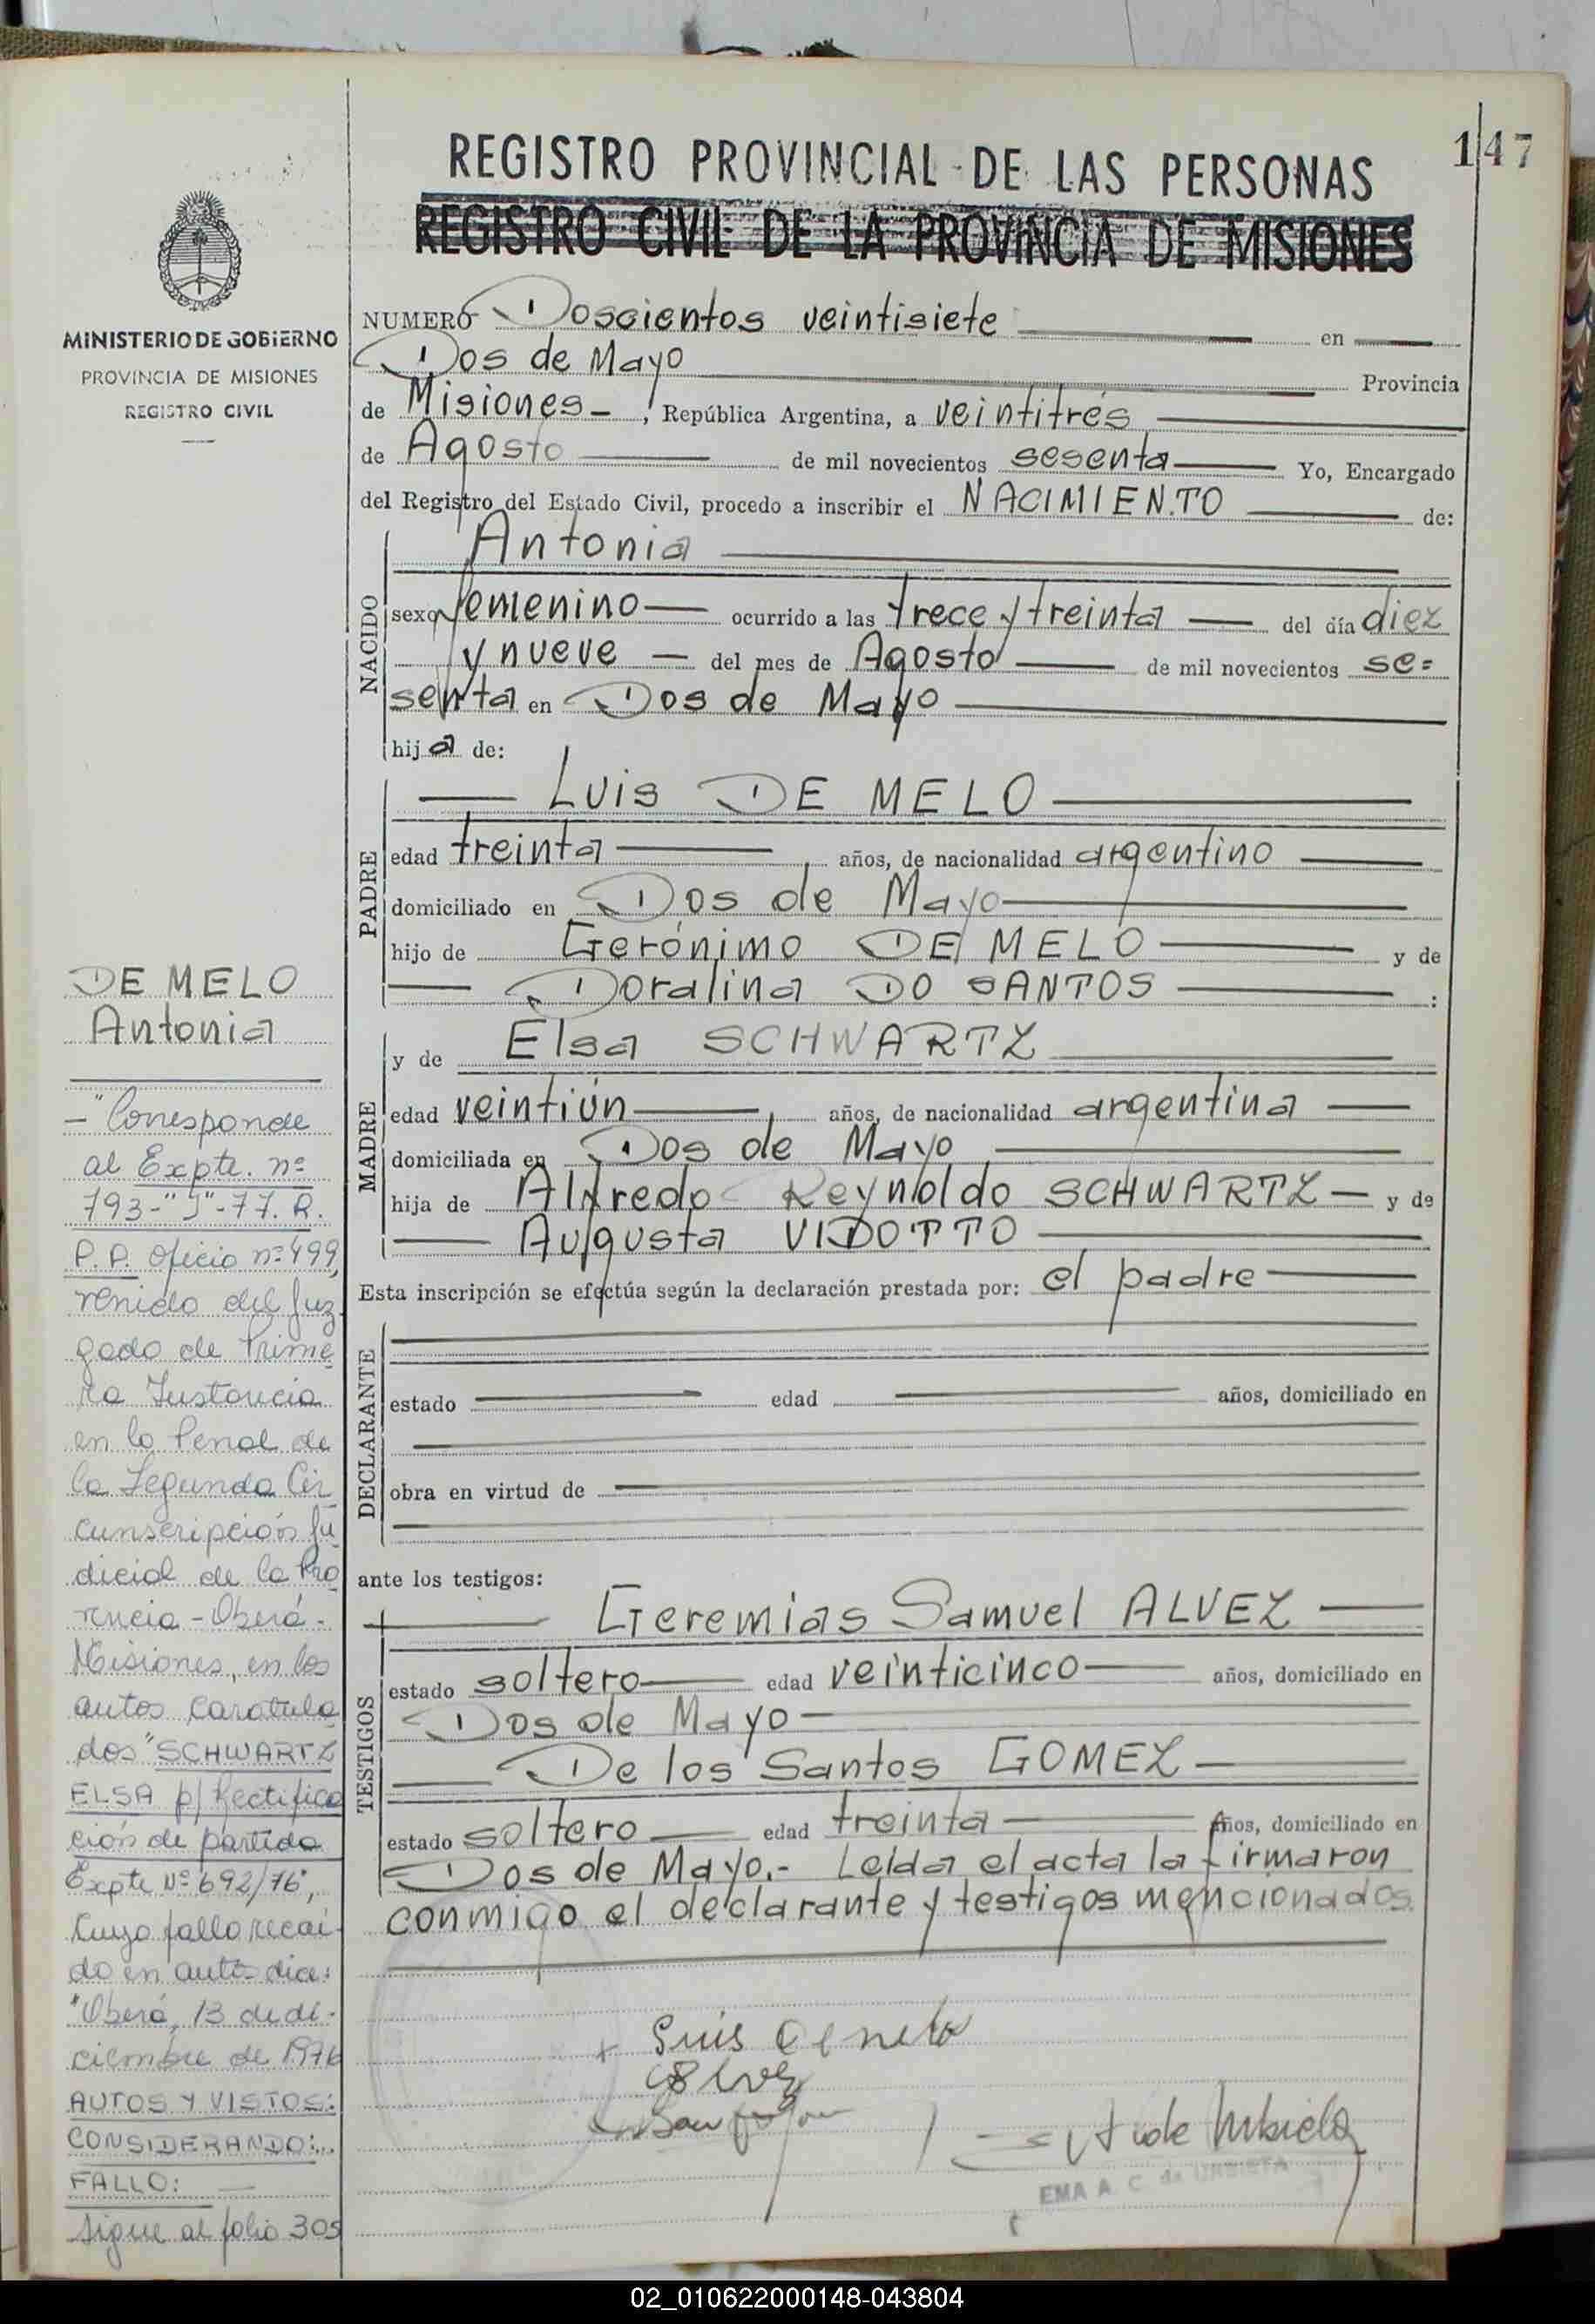 147
REGISTRO PROVINCIAL DE LAS PERSONAS
REGISTRO CIVIL DE LA PROVINCIA DE MISIONES
MINISTERIO DE GOBIERNO
PROVINCIA DE MISIONES
REGISTRO CIVIL
NUMERO Doscientos veintisiete en
Dos de Mayo Provincia
de Misiones, República Argentina, a veintitrés
de Agosto de mil novecientos sesenta Yo, Encargado
del Registro del Estado Civil, procedo a inscribir el NACIMIENTO de:
NACIDO
Antonia
sexo femenino ocurrido a las trece y treinta del día diez
y nueve del mes de Agosto de mil novecientos se=
senta en Dos de Mayo
hija de:
PADRE
Luis DE MELO
edad treinta años, de nacionalidad argentino
domiciliado en Dos de Mayo
hijo de Gerónimo DE MELO y de
Doralina DO SANTOS :
MADRE
y de Elsa SCHWARTZ
edad veintiún, años, de nacionalidad argentina
domiciliada en Dos de Mayo
hija de Alfredo Reynoldo SCHWARTZ y de
Augusta VIDOTTO
Esta inscripción se efectúa según la declaración prestada por: el padre
DECLARANTE
estado edad años, domiciliado en
obra en virtud de
ante los testigos:
TESTIGOS
Geremias Samuel ALVEZ
estado soltero edad veinticinco años, domiciliado en
Dos de Mayo
De los Santos GOMEZ
estado soltero edad treinta años, domiciliado en
Dos de Mayo.- Leida el acta la firmaron
conmigo el declarante y testigos mencionados.
Luis De melo
EMA A. C. de URBIETA
DE MELO
Antonia
- "Corresponde
al Expte. nº
793-"J"-77. R.
P.P. Oficio nº 499,
venido del Juz
gado de Prime
ra Instancia
en lo Penal de
la Segunda Cir
cunscripción Ju
dicial de la Pro
vincia - Oberá -
Misiones, en los
autos Caratula
dos "SCHWARTZ
ELSA p/ Rectifica
ción de partida
Expte Nº 692/76",
Cuyo fallo recaí
do en autos dice:
"Oberá, 13 de di-
ciembre de 1976
AUTOS Y VISTOS:
CONSIDERANDO:..
FALLO: —
Sigue al folio 305
02_010622000148-043804